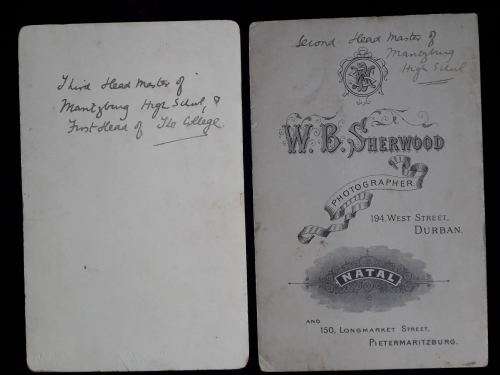 Third Head Master of
Maritzburg High School, &
First Head of The College.
Second Head Master of
Maritzburg
High School
W. B. SHERWOOD
PHOTOGRAPHER.
194, WEST STREET,
DURBAN.
NATAL
AND
150, LONGMARKET STREET,
PIETERMARITZBURG.